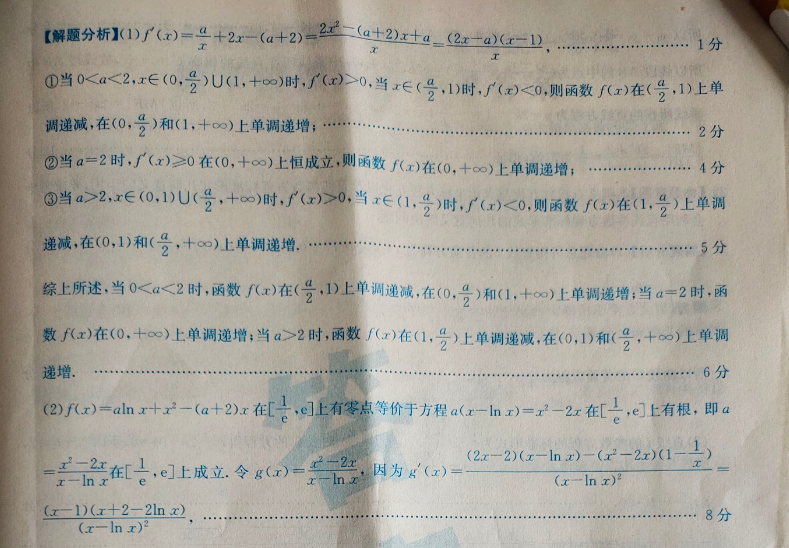 【解题分析】(1) f′(x)=a/x+2x−(a+2)=(2x²−(a+2)x+a)/x=((2x−a)(x−1))/x, …… 1分
①当 0<a<2,x∈(0,a/2)∪(1,+∞)时,f′(x)>0,当 x∈(a/2,1)时,f′(x)<0,则函数 f(x)在(a/2,1)上单
调递减,在(0,a/2)和(1,+∞)上单调递增; …… 2分
②当 a=2 时,f′(x)≥0 在(0,+∞)上恒成立,则函数 f(x)在(0,+∞)上单调递增; …… 4分
③当 a>2,x∈(0,1)∪(a/2,+∞)时,f′(x)>0,当 x∈(1,a/2)时,f′(x)<0,则函数 f(x)在(1,a/2)上单调
递减,在(0,1)和(a/2,+∞)上单调递增. …… 5分
综上所述,当 0<a<2 时,函数 f(x)在(a/2,1)上单调递减,在(0,a/2)和(1,+∞)上单调递增;当 a=2 时,函
数 f(x)在(0,+∞)上单调递增;当 a>2 时,函数 f(x)在(1,a/2)上单调递减,在(0,1)和(a/2,+∞)上单调
递增. …… 6分
(2) f(x)=aln x+x²−(a+2)x 在[1/e,e]上有零点等价于方程 a(x−ln x)=x²−2x 在[1/e,e]上有根,即 a
=(x²−2x)/(x−ln x)在[1/e,e]上成立.令 g(x)=(x²−2x)/(x−ln x),因为 g′(x)=((2x−2)(x−ln x)−(x²−2x)(1−1/x))/(x−ln x)²=
((x−1)(x+2−2ln x))/(x−ln x)², …… 8分
答